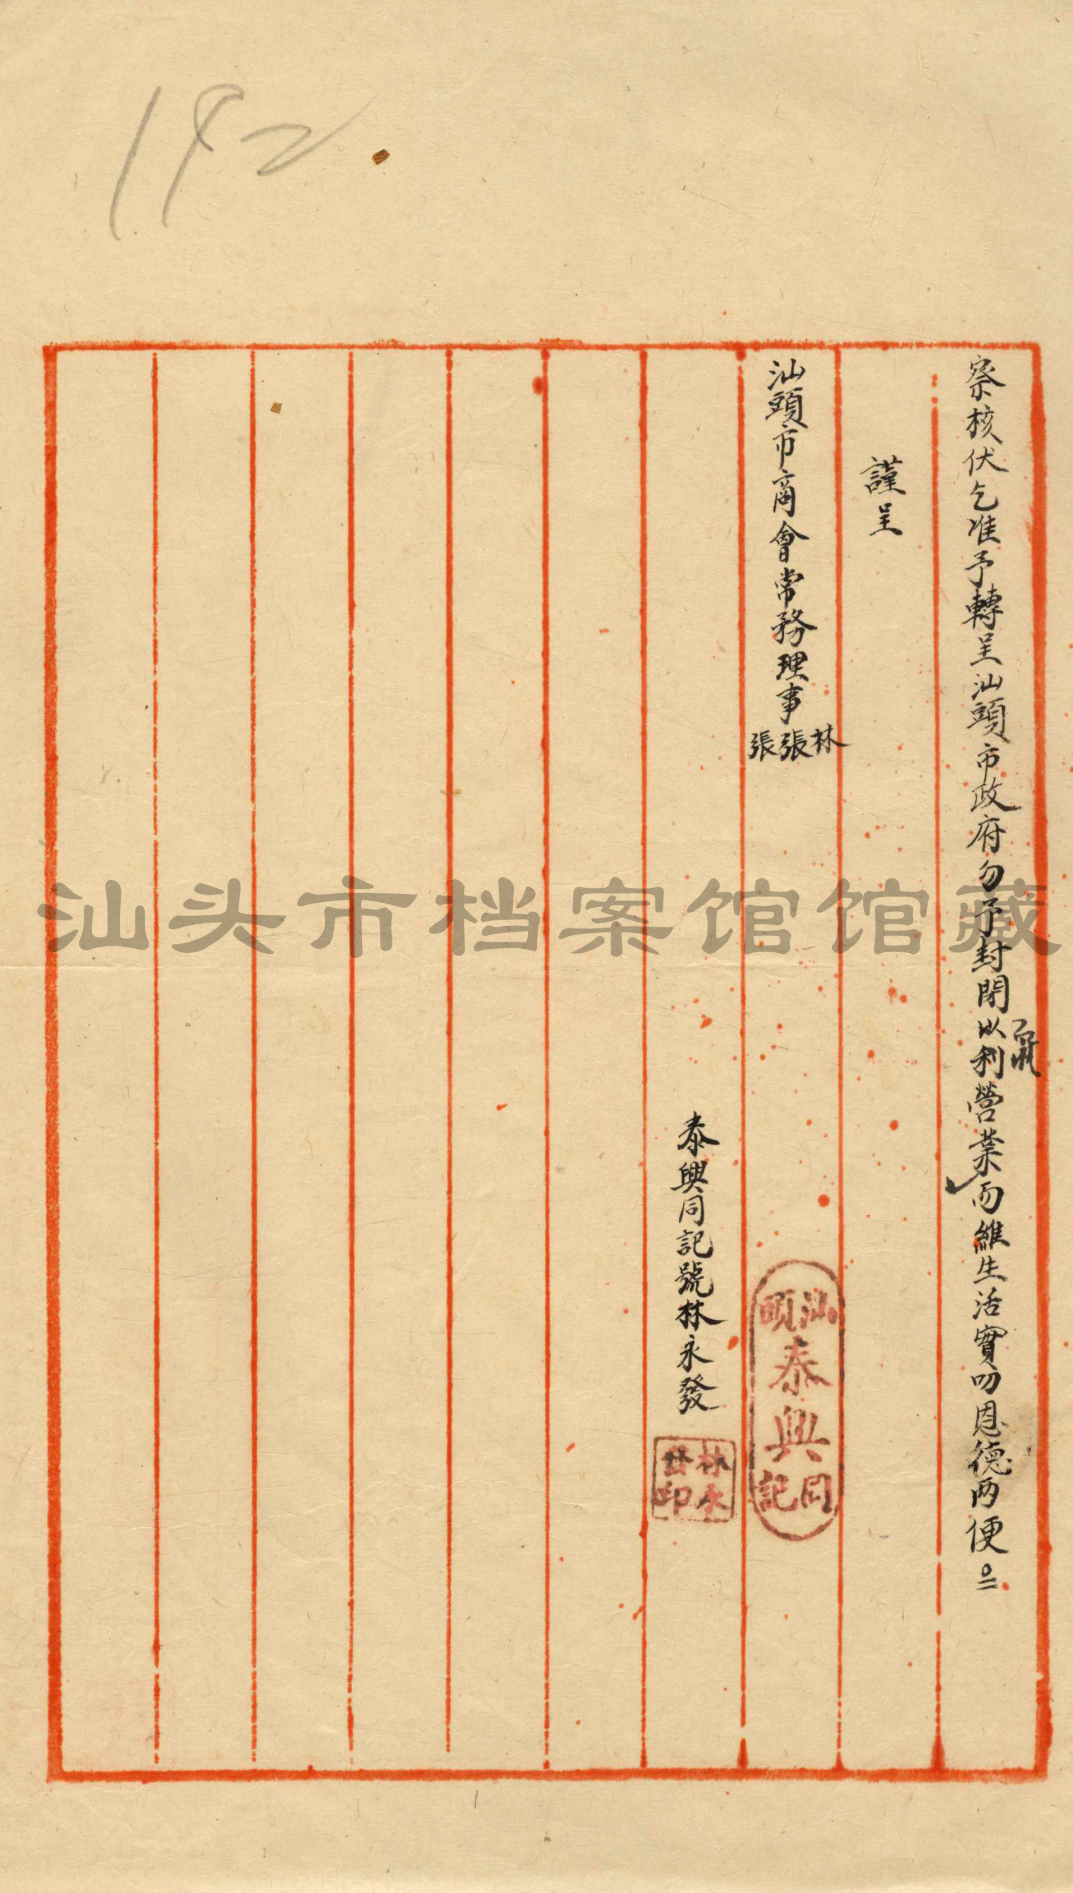 192
察核伏乞准予轉呈汕頭市政府勿予封閉以利營業而維生活實叨恩德两便
謹呈
汕頭市商會常務理事林張張
泰興同記號林永發
汕頭泰興同記
林永發印
汕头市档案馆馆藏